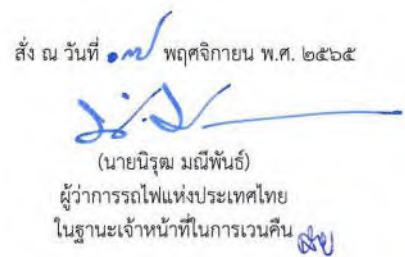 สั่ง ณ วันที่ ๑๗ พฤศจิกายน พ.ศ. ๒๕๖๕
(นายนิรุฒ มณีพันธ์)
ผู้ว่าการรถไฟแห่งประเทศไทย
ในฐานะเจ้าหน้าที่ในการเวนคืน